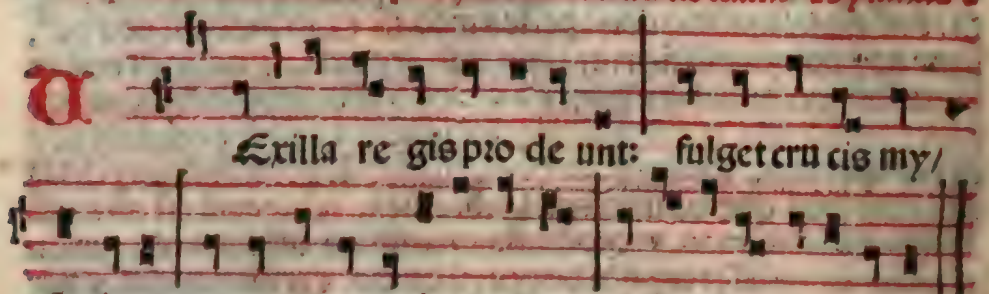 U
Exilla re gis pro de unt: fulget cru cis my/